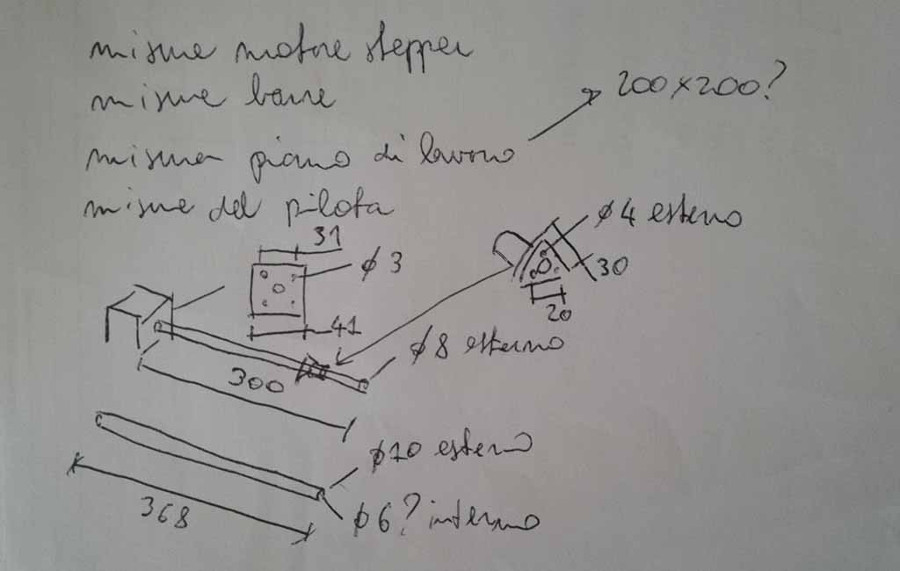 misure motore stepper
misure barre
misura piano di lavoro
200x200?
misure del pilota
31
ø 3
41
ø 4 esterno
30
20
ø 8 esterno
300
ø 10 esterno
368
ø 6? interno